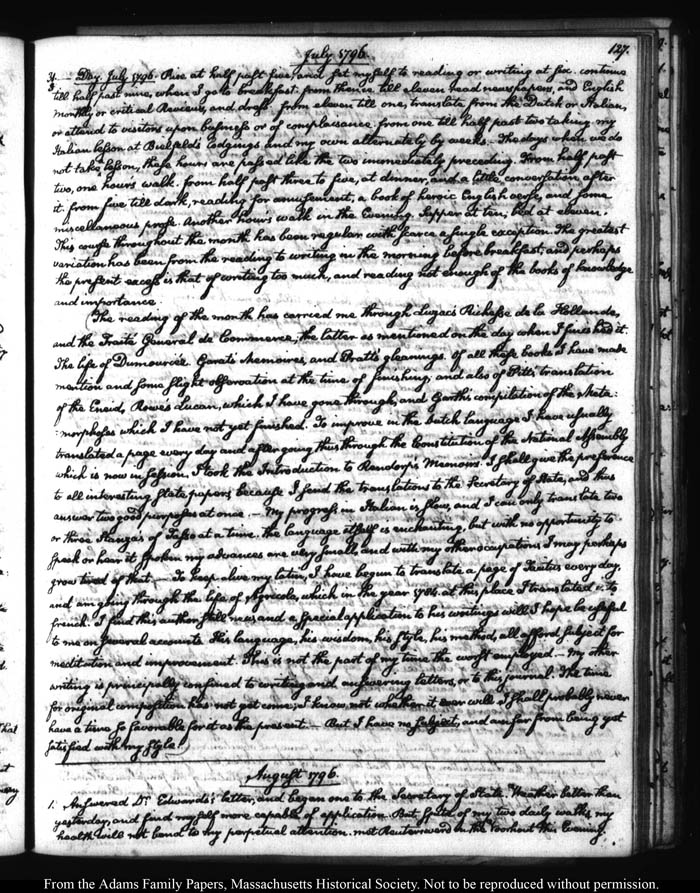 July 1796.
127.
Day. July 1796. Rise at half past five, and set myself to reading or writing at six. continue
till half past nine, when I go to breakfast. from thence till eleven read newspapers, and English
monthly or critical Reviews, and dress. from eleven till one, translate from the Dutch or Italian,
or attend to visitors upon business or of complaisance. from one till half past two taking my
Italian lesson at Bielfeld's lodgings and my own alternately by weeks. The days when we do
not take lesson, these hours are passed like the two immediately preceding. From half past
two, one hours walk. from half past three to five, at dinner, and a little conversation after
it. from five till dark, reading for amusement, a book of heroic English verse, and some
miscellaneous prose. Another hour's walk in the Evening. Supper at ten, bed at eleven.
This course throughout the month has been regular with scarce a single exception. The greatest
variation has been from the reading to writing in the morning before breakfast; and perhaps
the present excess is that of writing too much, and reading not enough of the books of knowledge
and importance.
(The reading of the month has carried me through Luzac's Richesse de la Hollande,
and the Traité General de Commerce; the latter as mentioned on the day when I finished it.
The life of Dumouriez. Garat's Memoires, and Pratt's gleanings. Of all these books I have made
mention and some slight observation at the time of finishing, and also of Pitt's translation
of the Eneid, Rowe's Lucan, which I have gone through, and Garth's compilation of the Meta:
:morphoses which I have not yet finished. To improve in the Dutch language I have usually
translated a page every day and after going thus through the Constitution of the National Assembly
which is now in session, I took the Introduction to Rendorp's Memoirs. I shall give the preference
to all interesting State papers, because I send the translations to the Secretary of State, and thus
answer two good purposes at once. — My progress in Italian is slow, and I can only translate two
or three Stanzas of Tasso at a time. The language itself is enchanting, but with no opportunity to
speak or hear it spoken my advances are very small, and with my other occupations I may perhaps
grow tired of that. — To keep alive my latin, I have begun to translate a page of Tacitus every day,
and am going through the life of Agricola, which in the year 1784. at this place I translated into
french. I find this author still new and a special application to his writings will I hope be useful
to me on several accounts. His language, his wisdom, his style, his method, all afford subject for
meditation and improvement. This is not the part of my time the worst employed. — My other
writing is principally confined to writing and answering letters, or to this journal. The time
for original composition has not yet come; I know not whether it ever will. I shall probably never
have a time so favorable for it as the present. — But I have no subject, and am far from being yet
satisfied with my style.)
August 1796.
1. Answered Dr. Edwards's letter, and began one to the Secretary of State. Weather better than
yesterday, and find myself more capable of application. But spite of my two daily walks, my
health will not bend to my perpetual attention. met Reutersward in the Voorhout this Evening.
From the Adams Family Papers, Massachusetts Historical Society. Not to be reproduced without permission.